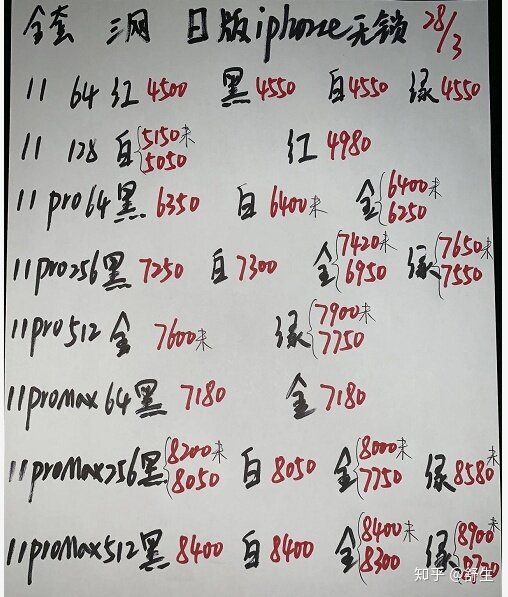 全套 三网 日版iphone无锁 28/3
11 64 红4500 黑4550 白4550 绿4550
11 128 白{5150未 5050 红4980
11pro64黑6350 白6400未 金{6400未 6250
11pro256黑7250 白7300 金{7420未 6950 绿{7650未 7550
11pro512金 7600未 绿{7900未 7750
11proMax64黑 7180 金7180
11proMax256黑{8200未 8050 白8050 金{8000未 7750 绿8580未
11proMax512黑8400 白8400 金{8400未 8300 绿{8900未 8700
知乎 @舒生